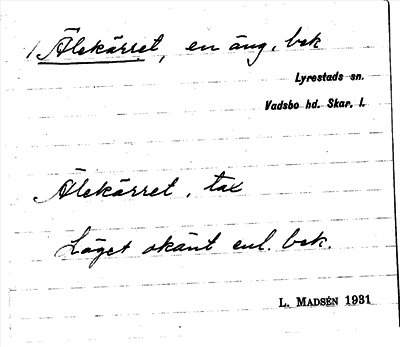 1 Älekärret, en äng. bek
Lyrestads sn.
Vadsbo hd. Skar. l.
Älekärret, tax
Läget okänt enl. bek.
L. MADSÉN 1931